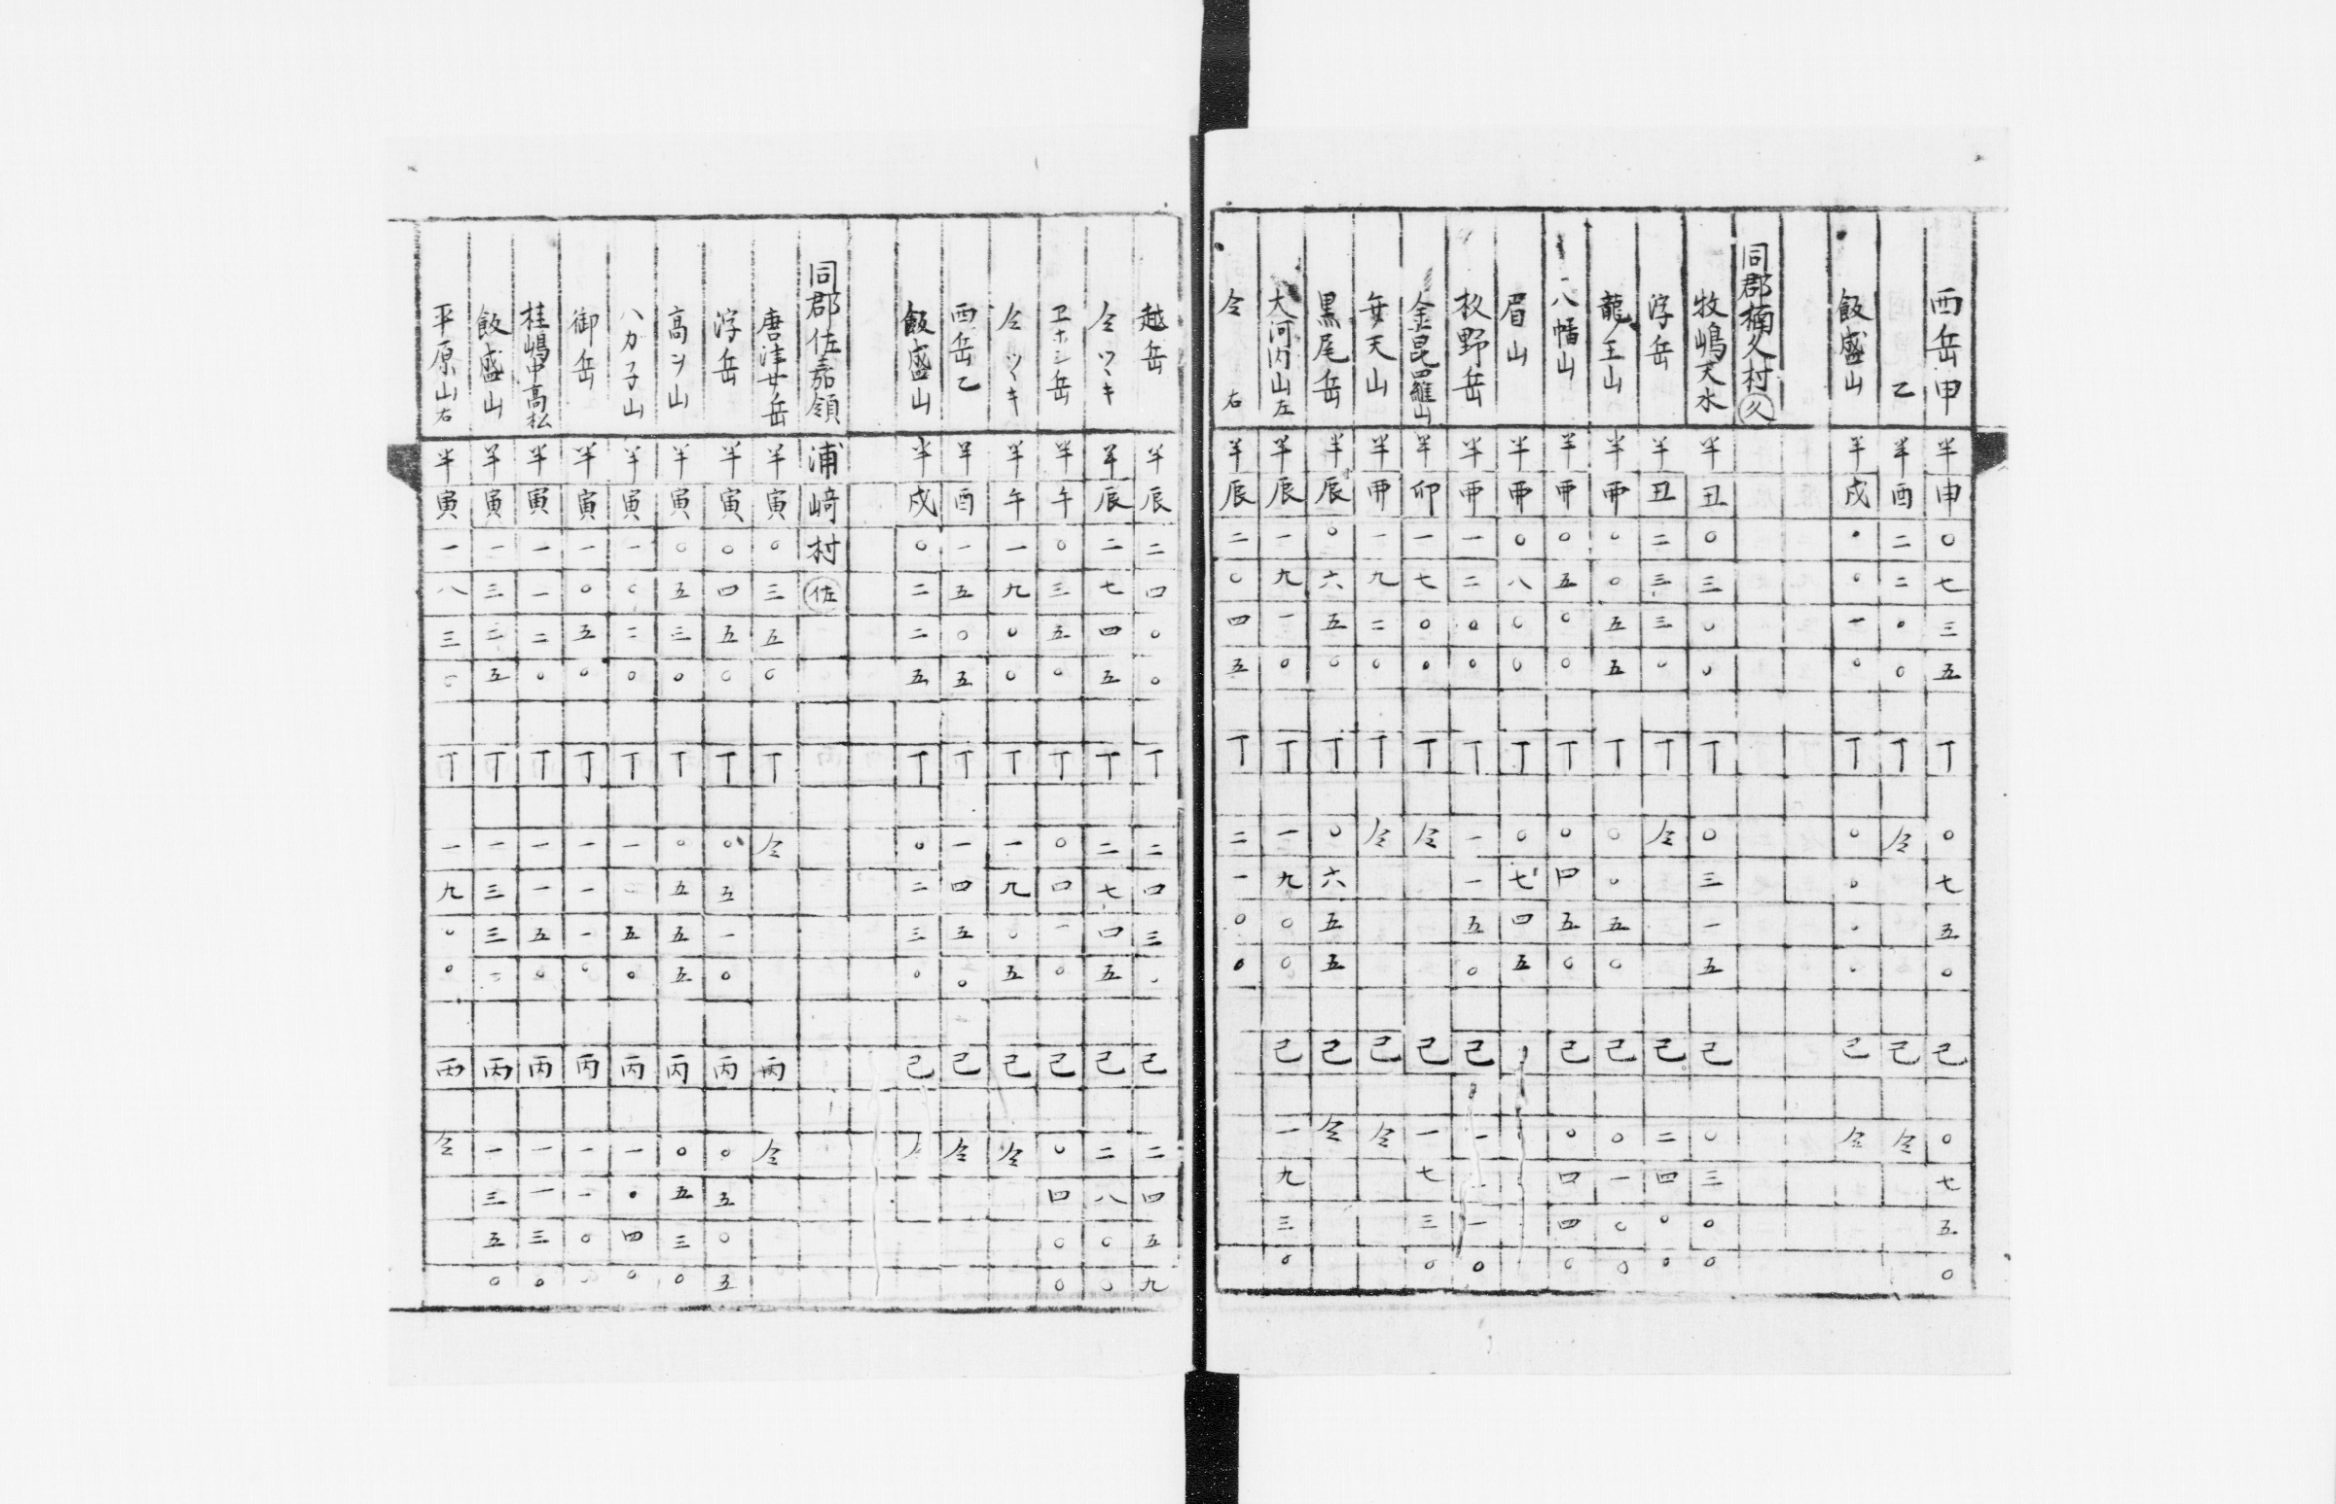 西岳甲 半申〇七三五 丁 〇七五〇 己 〇七五〇
乙 半酉二二〇〇 丁 仝 己 仝
飯盛山 半戌〇〇一〇 丁 〇〇〇〇 己 仝
同郡楠久村久
牧嶋天水 半丑〇三〇〇 丁 〇三一五 己 〇三〇〇
浮岳 半丑二三三〇 丁 仝 己 二四〇〇
龍ノ王山 半丣〇〇五五 丁 〇〇五〇 己 〇一〇〇
八幡山 半丣〇五〇〇 丁 〇四五〇 己 〇四四〇
眉山 半丣〇八〇〇 丁 〇七四五
牧野岳 半丣一二〇〇 丁 一一五〇 己 一一一〇
金昆羅山 半卯一七〇〇 丁 仝 己 一七三〇
毎天山 半丣一九二〇 丁 仝 己 仝
黒尾岳 半辰〇六五〇 丁 〇六五五 己 仝
大河内山左 半辰一九一〇 丁 一九〇〇 己 一九三〇
仝 右 半辰二〇四五 丁 二一〇〇
越岳 半辰二四〇〇 丁 二四三〇 己 二四五九
仝ツヽキ 半辰二七四五 丁 二七四五 己 二八〇〇
ヱホシ岳 半午〇三五〇 丁 〇四一〇 己 〇四〇〇
仝ツヽキ 半午一九〇〇 丁 一九〇五 己 仝
西岳乙 半酉一五〇五 丁 一四五〇 己 仝
飯盛山 半戌〇二二五 丁 〇二三〇 己 仝
同郡佐嘉領浦﨑村佐
唐津女岳 半寅〇三五〇 丁 仝 丙 仝
浮岳 半寅〇四五〇 丁 〇五一〇 丙 〇五〇五
高ヲ山 半寅〇五三〇 丁 〇五五五 丙 〇五三〇
ハカ子山 半寅一〇二〇 丁 一 五〇 丙 一〇四〇
御岳 半寅一〇五〇 丁 一一一〇 丙 一一〇〇
桂嶋中高松 半寅一一二〇 丁 一一五〇 丙 一一三〇
飯盛山 半寅一三二五 丁 一三三 丙 一三五〇
平原山右 半寅一八三〇 丁 一九〇〇 丙 仝